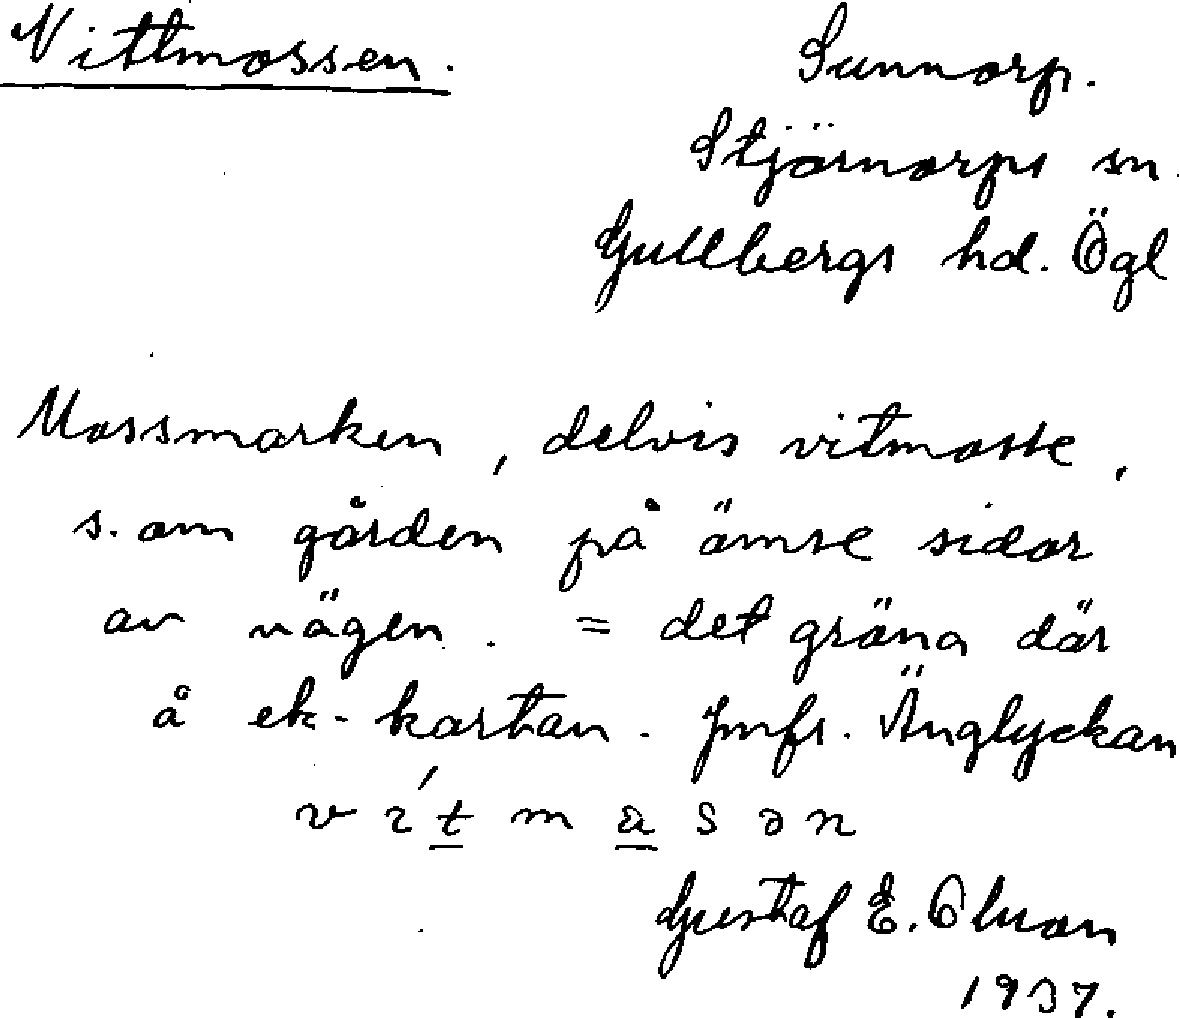 Vittmossen.
Sunnorp.
Stjärnorps sn.
Gullbergs hd. Ögl
Mossmarken, delvis vitmosse,
s. om gården på ömse sidor
av vägen. = det gröna där
å ek-kartan. Jmfr. Änglyckan
v i ́t m å s ə n
Gustaf E. Olsson
1937.